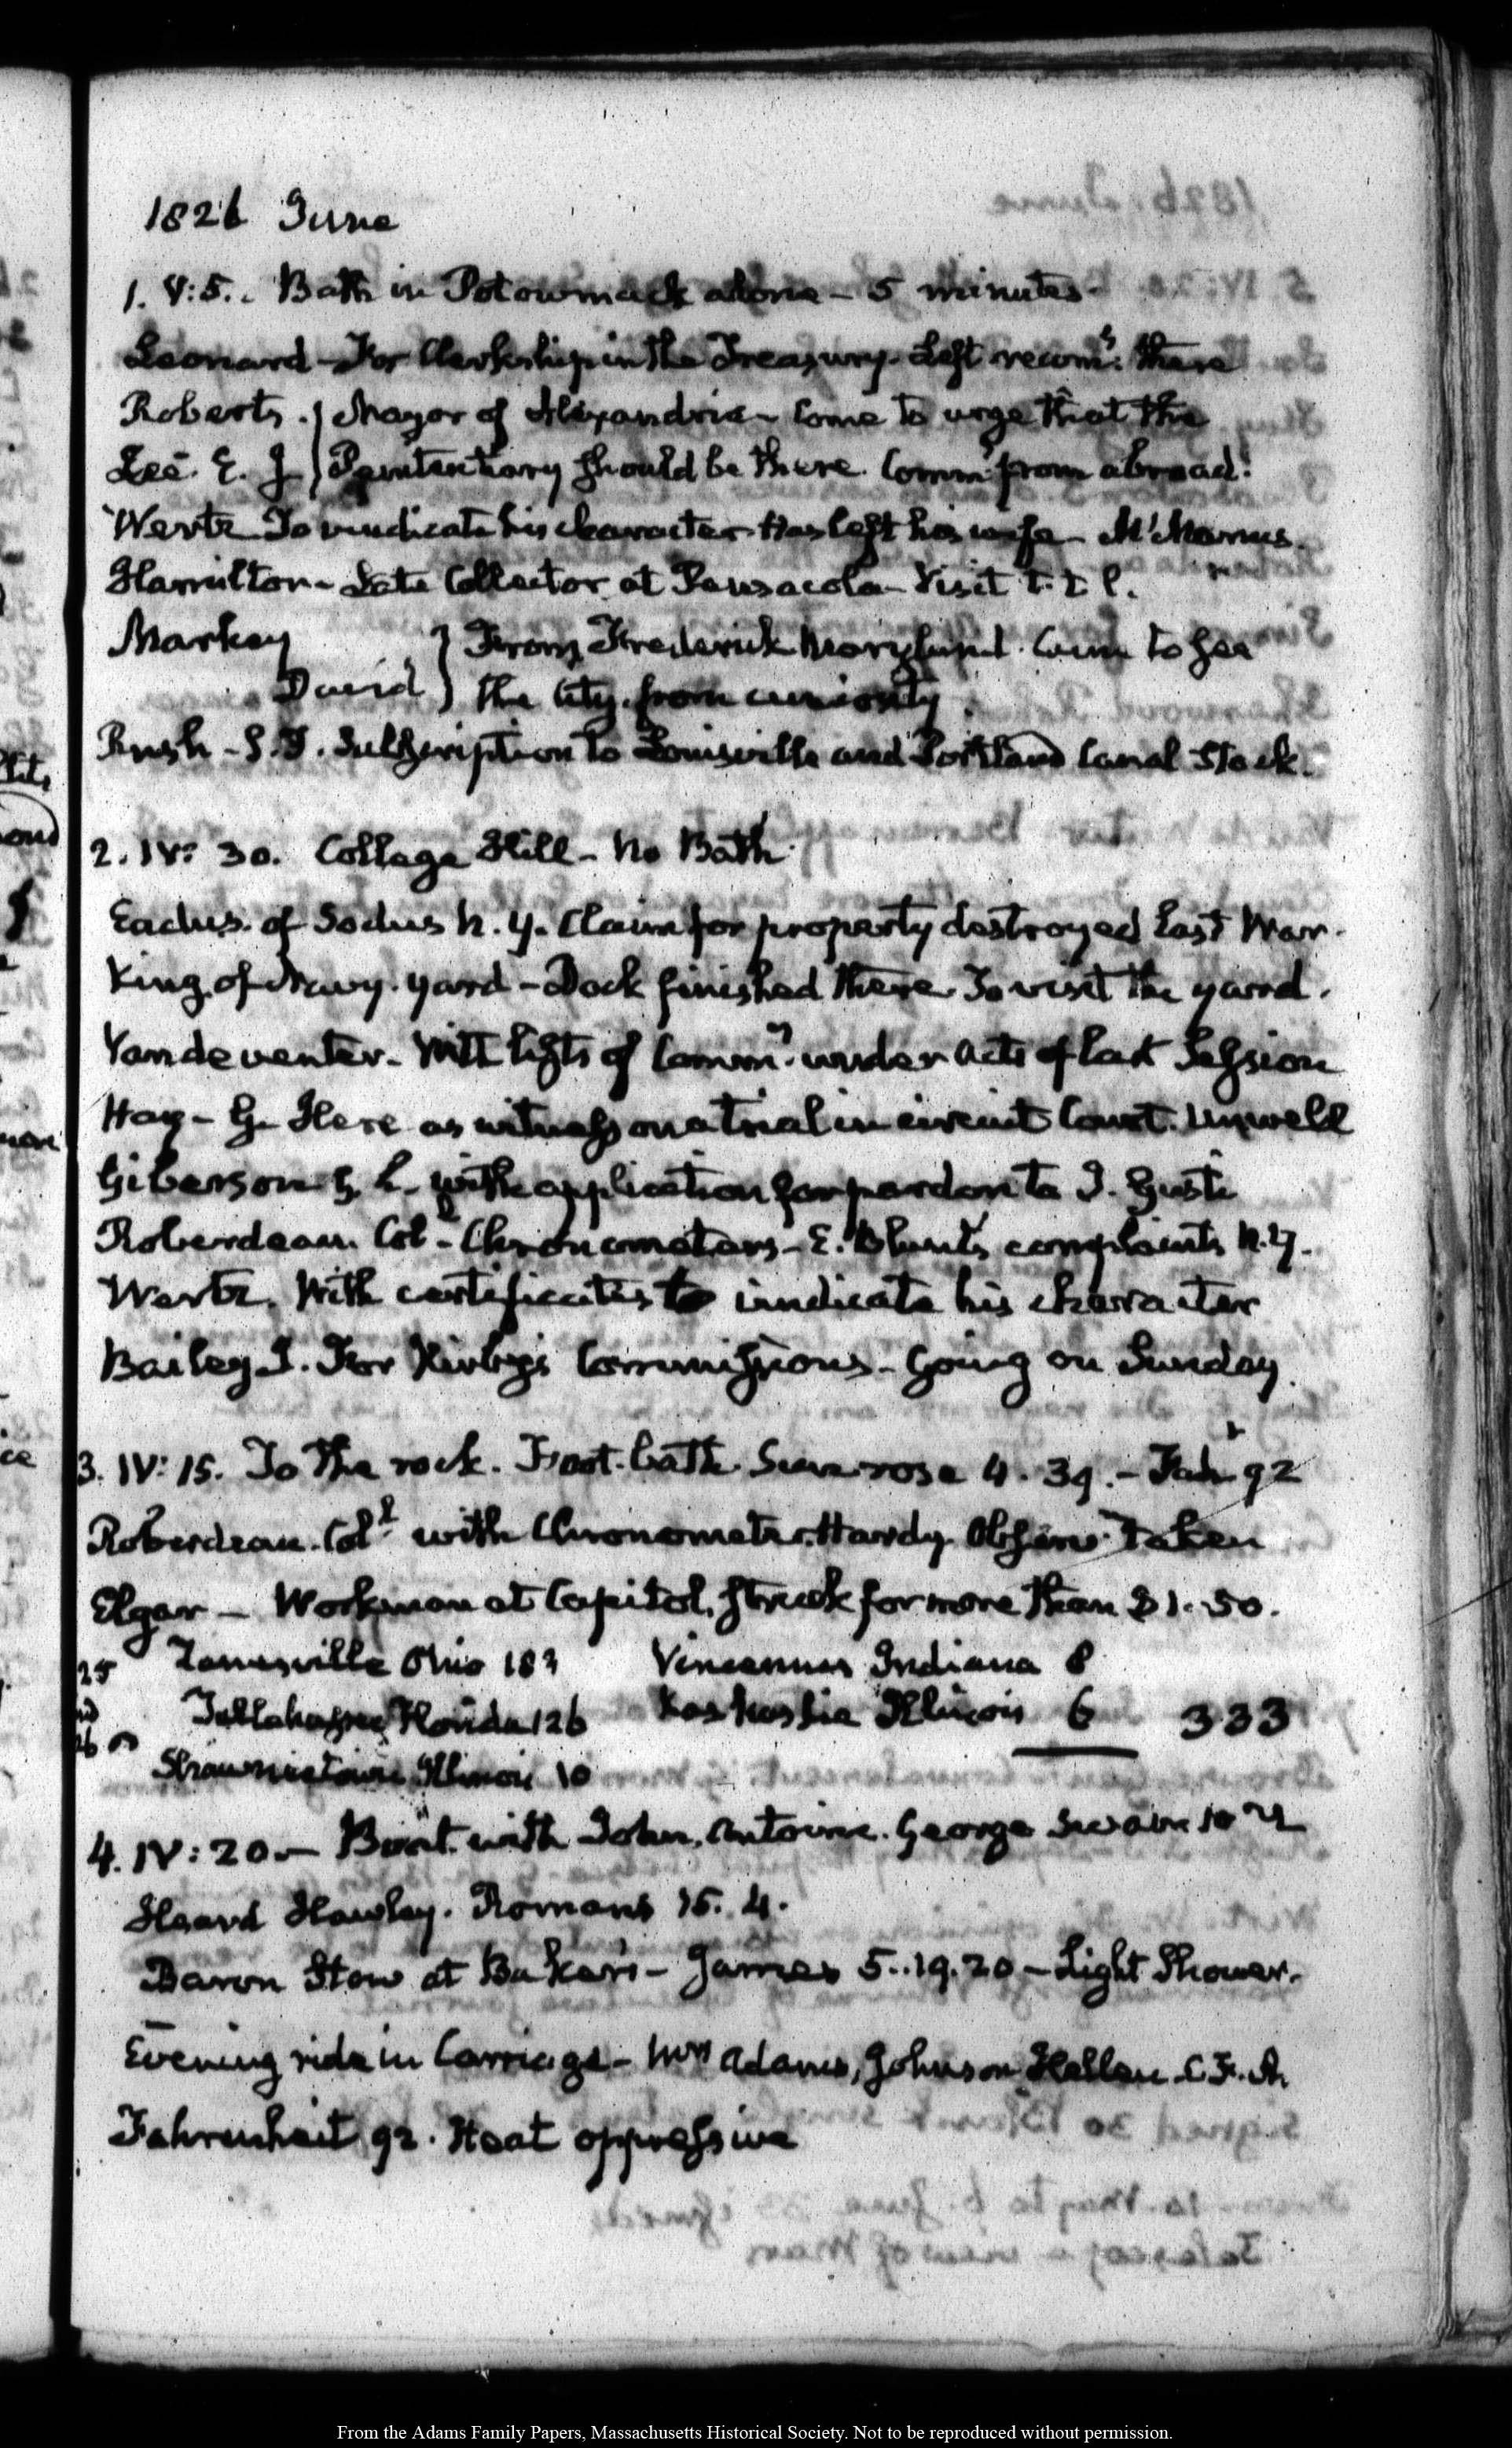 1826 June
1. V:5.. Bath in Potowmack alone – 5 minutes.
Leonard – For Clerkship in the Treasury. Left recomns. there
Roberts. } Mayor of Alexandria – Come to urge that the
Lee. E. J } Penitentiary should be there. Commrs from abroad.
Wertz To vindicate his character. Has left his wife – McManus.
Hamilton – Late Collector at Pensacola – Visit t. t. l.
Markey } From Frederick Maryland. Come to see
David } the City, from curiosity.
Rush – S.T. Subscription to Louisville and Portland Canal Stock.
2. IV: 30. College Hill – No Bath.
Eadus. of Sodus N. Y. Claim for property destroyed last War.
King. of Navy. yard – Dock finished there. To visit the yard.
Vandeventer. With lists of Commrs. under Acts of last Session
Hay – G. Here as witness on a trial in circuit Court. Unwell
Giberson G. L. with application for pardon to J. Gusti
Roberdeau. Col – Chronometers – E. Blunt's complaints N.Y.
Wertz. With certificates to vindicate his character
Bailey J. For Kirby's Commissions – Going on Sunday.
3. IV: 15. To the rock. Foot-bath. Sun rose 4. 39. – Fahr 92
Roberdeau. Coll with Chronometer. Hardy. Observn taken
Elgar – Workmen at Capitol, struck for more than $1.50.
25 Zanesville Ohio 183 Vincennes Indiana 8
Tallahassee Florida 126 Kaskaskia Illinois 6 333
Shawneetown Illinois 10
4. IV: 20 – Boat. with John, Antoine. George Swam 10
Heard Hawley. Romans 15. 4.
Baron Stow at Baker's – James 5..19.20 – Light Shower.
Evening ride in Carriage – Mrs Adams, Johnson Hellen. C.F.A
Fahrenheit 92. Heat oppressive
From the Adams Family Papers, Massachusetts Historical Society. Not to be reproduced without permission.